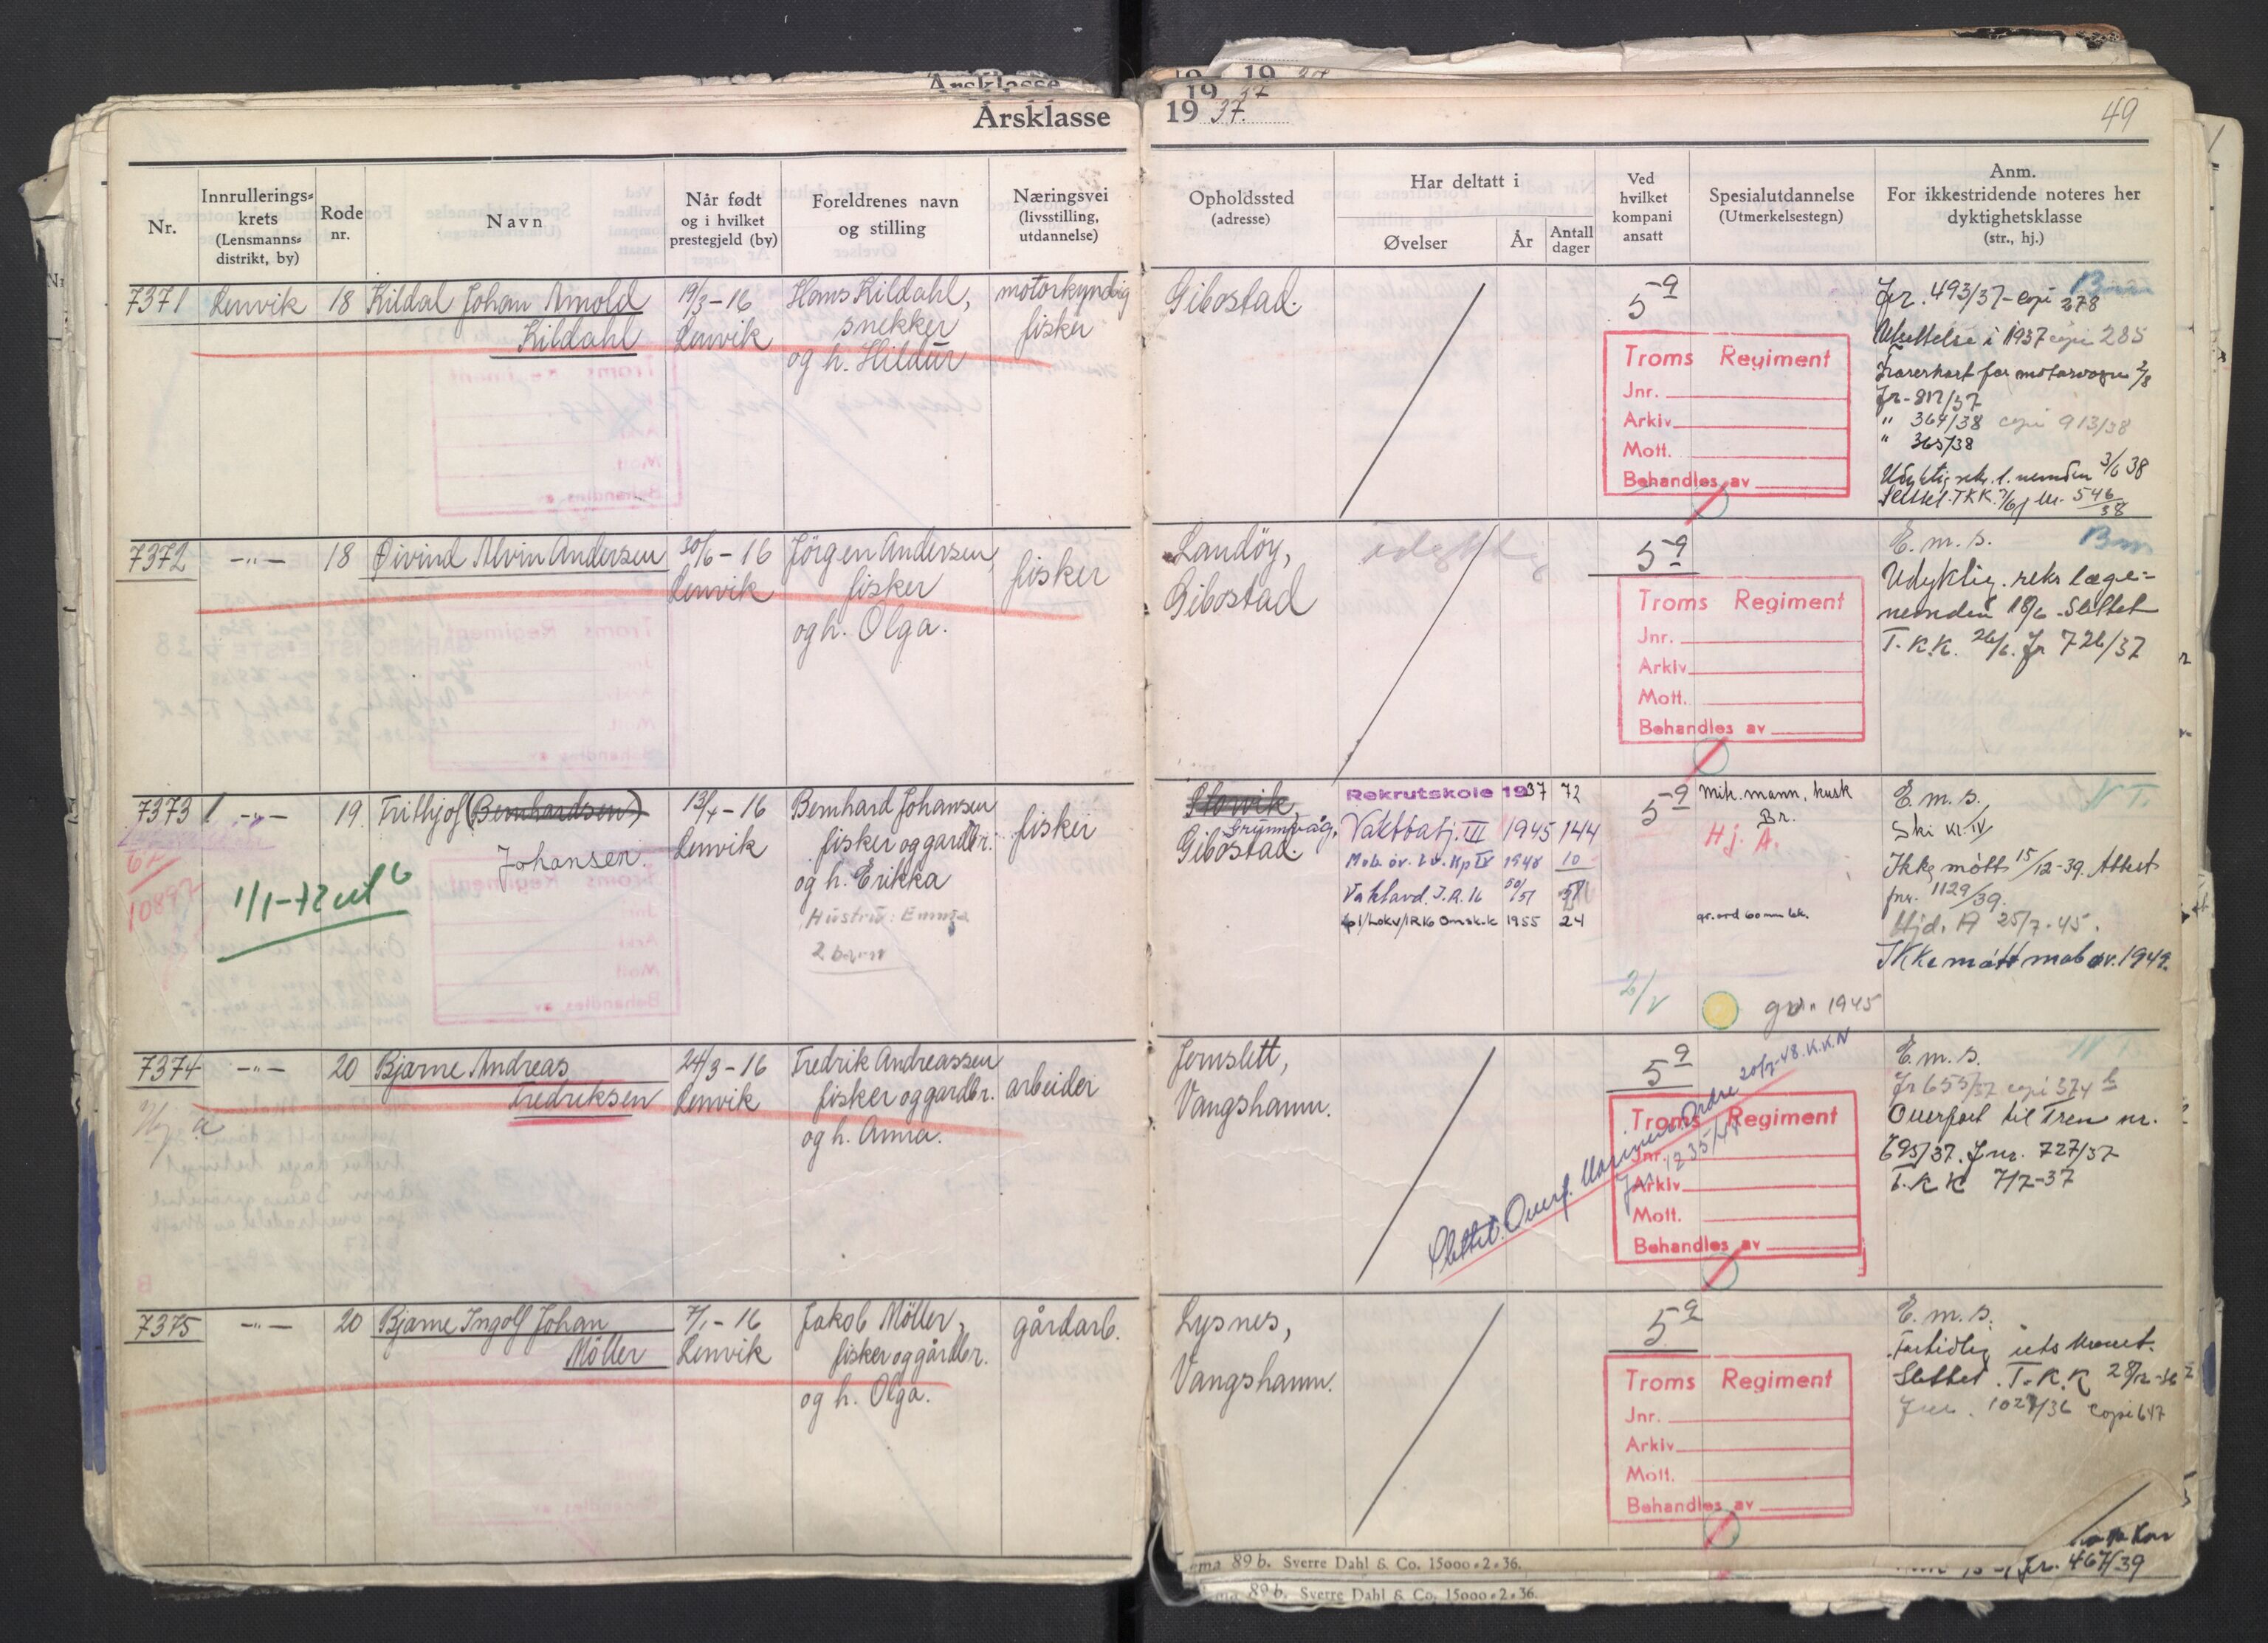 Årsklasse 1937.
49
Nr.
Innrullerings-
krets
(Lensmanns-
distrikt, by)
Rode
nr.
Navn
Når født
og i hvilket
prestegjeld (by)
Foreldrenes navn
og stilling
Næringsvei
(livsstilling,
utdannelse)
Opholdssted
(adresse)
Har deltatt i
Øvelser
År
Antall
dager
Ved
hvilket
kompani
ansatt
Spesialutdannelse
(Utmerkelsestegn)
Anm.
For ikkestridende noteres her
dyktighetsklasse
(str., hj.)
7371
Lenvik
18
Kildal Johan Arnold
Kildahl
19/3-16
Lenvik
Hans Kildahl,
snekker
og h. Hildur
motorkyndig
fisker
Gibostad.
5 9
Troms Regiment
Jnr.
Arkiv
Mott.
Behandles av
Jr. 493/37 - copi 278
Utsettelse i 1937 copi 285
Førerkort for motorvogn 2/8
" 364/38 copi 913/38
" 365/38
Udyktig sek. l. nemden 3/6 38
Slettet T.K.K. 546/38
7372
-"-
18
Øivind Alvin Andersen
30/6-16
Lenvik
Jörgen Andersen,
fisker
og h. Olga.
fisker
Landöy,
Gibostad
udyktig
5 9
Troms Regiment
Jnr.
Arkiv
Mott.
Behandles av
E.m.s.
Udyktig. sekr læge-
nemnden 18/6. Slettet
T.K.K. 26/6. Jr 726/37
7373
-"-
19
Frithjof (Bernhardsen)
Johansen
13/4-16
Lenvik
Bernhard Johansen
fisker og gardbr.
og h. Erikka
Hustru: Emma
2 barn
fisker
10897
1/1-72 utg
Grunnvåg,
Gibostad.
Rekrutskole 1937 72
Vaktbatj. III 1945 144
Mob. öv. Kp IV 1948 10
Vaktavd. I.R.16 50/51
1955 24
5 9
Mik. mann, kusk
Br.
Hj. A.
2/V
1945
E.m.s.
Ski kl. IV
Ikke møtt 15/12-39. Attest
jnr. 1129/39.
Htjd. A 25/7-45.
Ikke møtt mob øv. 1949.
7374
-"-
20
Bjarne Andreas
Fredriksen
24/3-16
Lenvik
Fredrik Andreassen
fisker og gardbr.
og h. Anna.
arbeider
Jernslett,
Vangshamn.
5 9
Slettet. Overf. Marinen. Ordre 20/7-48. K.K.N
Jnr. 1235/48
Troms Regiment
Jnr.
Arkiv
Mott.
Behandles av
E.m.s.
Jr 655/37 copi 374
Overført til Tren nr.
695/37. Jnr. 727/37
T.K.K 7/7-37
7375
-"-
20
Bjarne Ingolf Johan
Möller
7/1-16
Lenvik
Jakob Möller,
fisker og gårdbr.
og h. Olga.
gårdarb.
Lysnes,
Vangshamn.
5 9
Troms Regiment
Jnr.
Arkiv
Mott.
Behandles av
E.m.s.
Slettet. T.K.K 28/12-36
Jnr. 1027/36 copi 647
89 b. Sverre Dahl & Co. 15000-2-36.
Jr. 467/39
89 b. Sverre Dahl & Co. 15000-2-36.